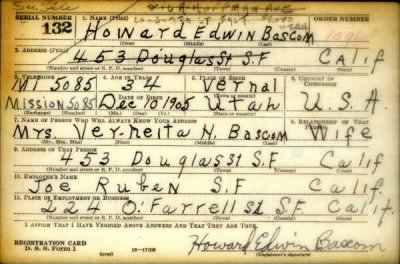 See File
SERIAL NUMBER 1. NAME (Print) ORDER NUMBER
132 Howard Edwin Bascom 1096
(First) (Middle) (Last)
2. ADDRESS (Print)
453 Douglas St S.F Calif
(Number and street or R. F. D. number) (Town) (County) (State)
3. TELEPHONE 4. AGE IN YEARS 5. PLACE OF BIRTH 6. COUNTRY OF CITIZENSHIP
MI 5085 34 Vernal
Mission 5085 DATE OF BIRTH (Town or county)
Dec 10 1905 Utah U.S.A
(Exchange) (Number) (Mo.) (Day) (Yr.) (State or country)
7. NAME OF PERSON WHO WILL ALWAYS KNOW YOUR ADDRESS 8. RELATIONSHIP OF THAT PERSON
Mrs. Verneita N. Bascom Wife
(Mr., Mrs., Miss) (First) (Middle) (Last)
9. ADDRESS OF THAT PERSON
453 Douglas St S.F Calif
(Number and street or R. F. D. number) (Town) (County) (State)
10. EMPLOYER'S NAME
Joe Ruben S.F Calif.
11. PLACE OF EMPLOYMENT OR BUSINESS
224 O'Farrell St S.F Calif.
(Number and street or R. F. D. number) (Town) (County) (State)
I AFFIRM THAT I HAVE VERIFIED ABOVE ANSWERS AND THAT THEY ARE TRUE.
REGISTRATION CARD
D. S. S. Form 1 Howard Edwin Bascom
(Registrant's signature)